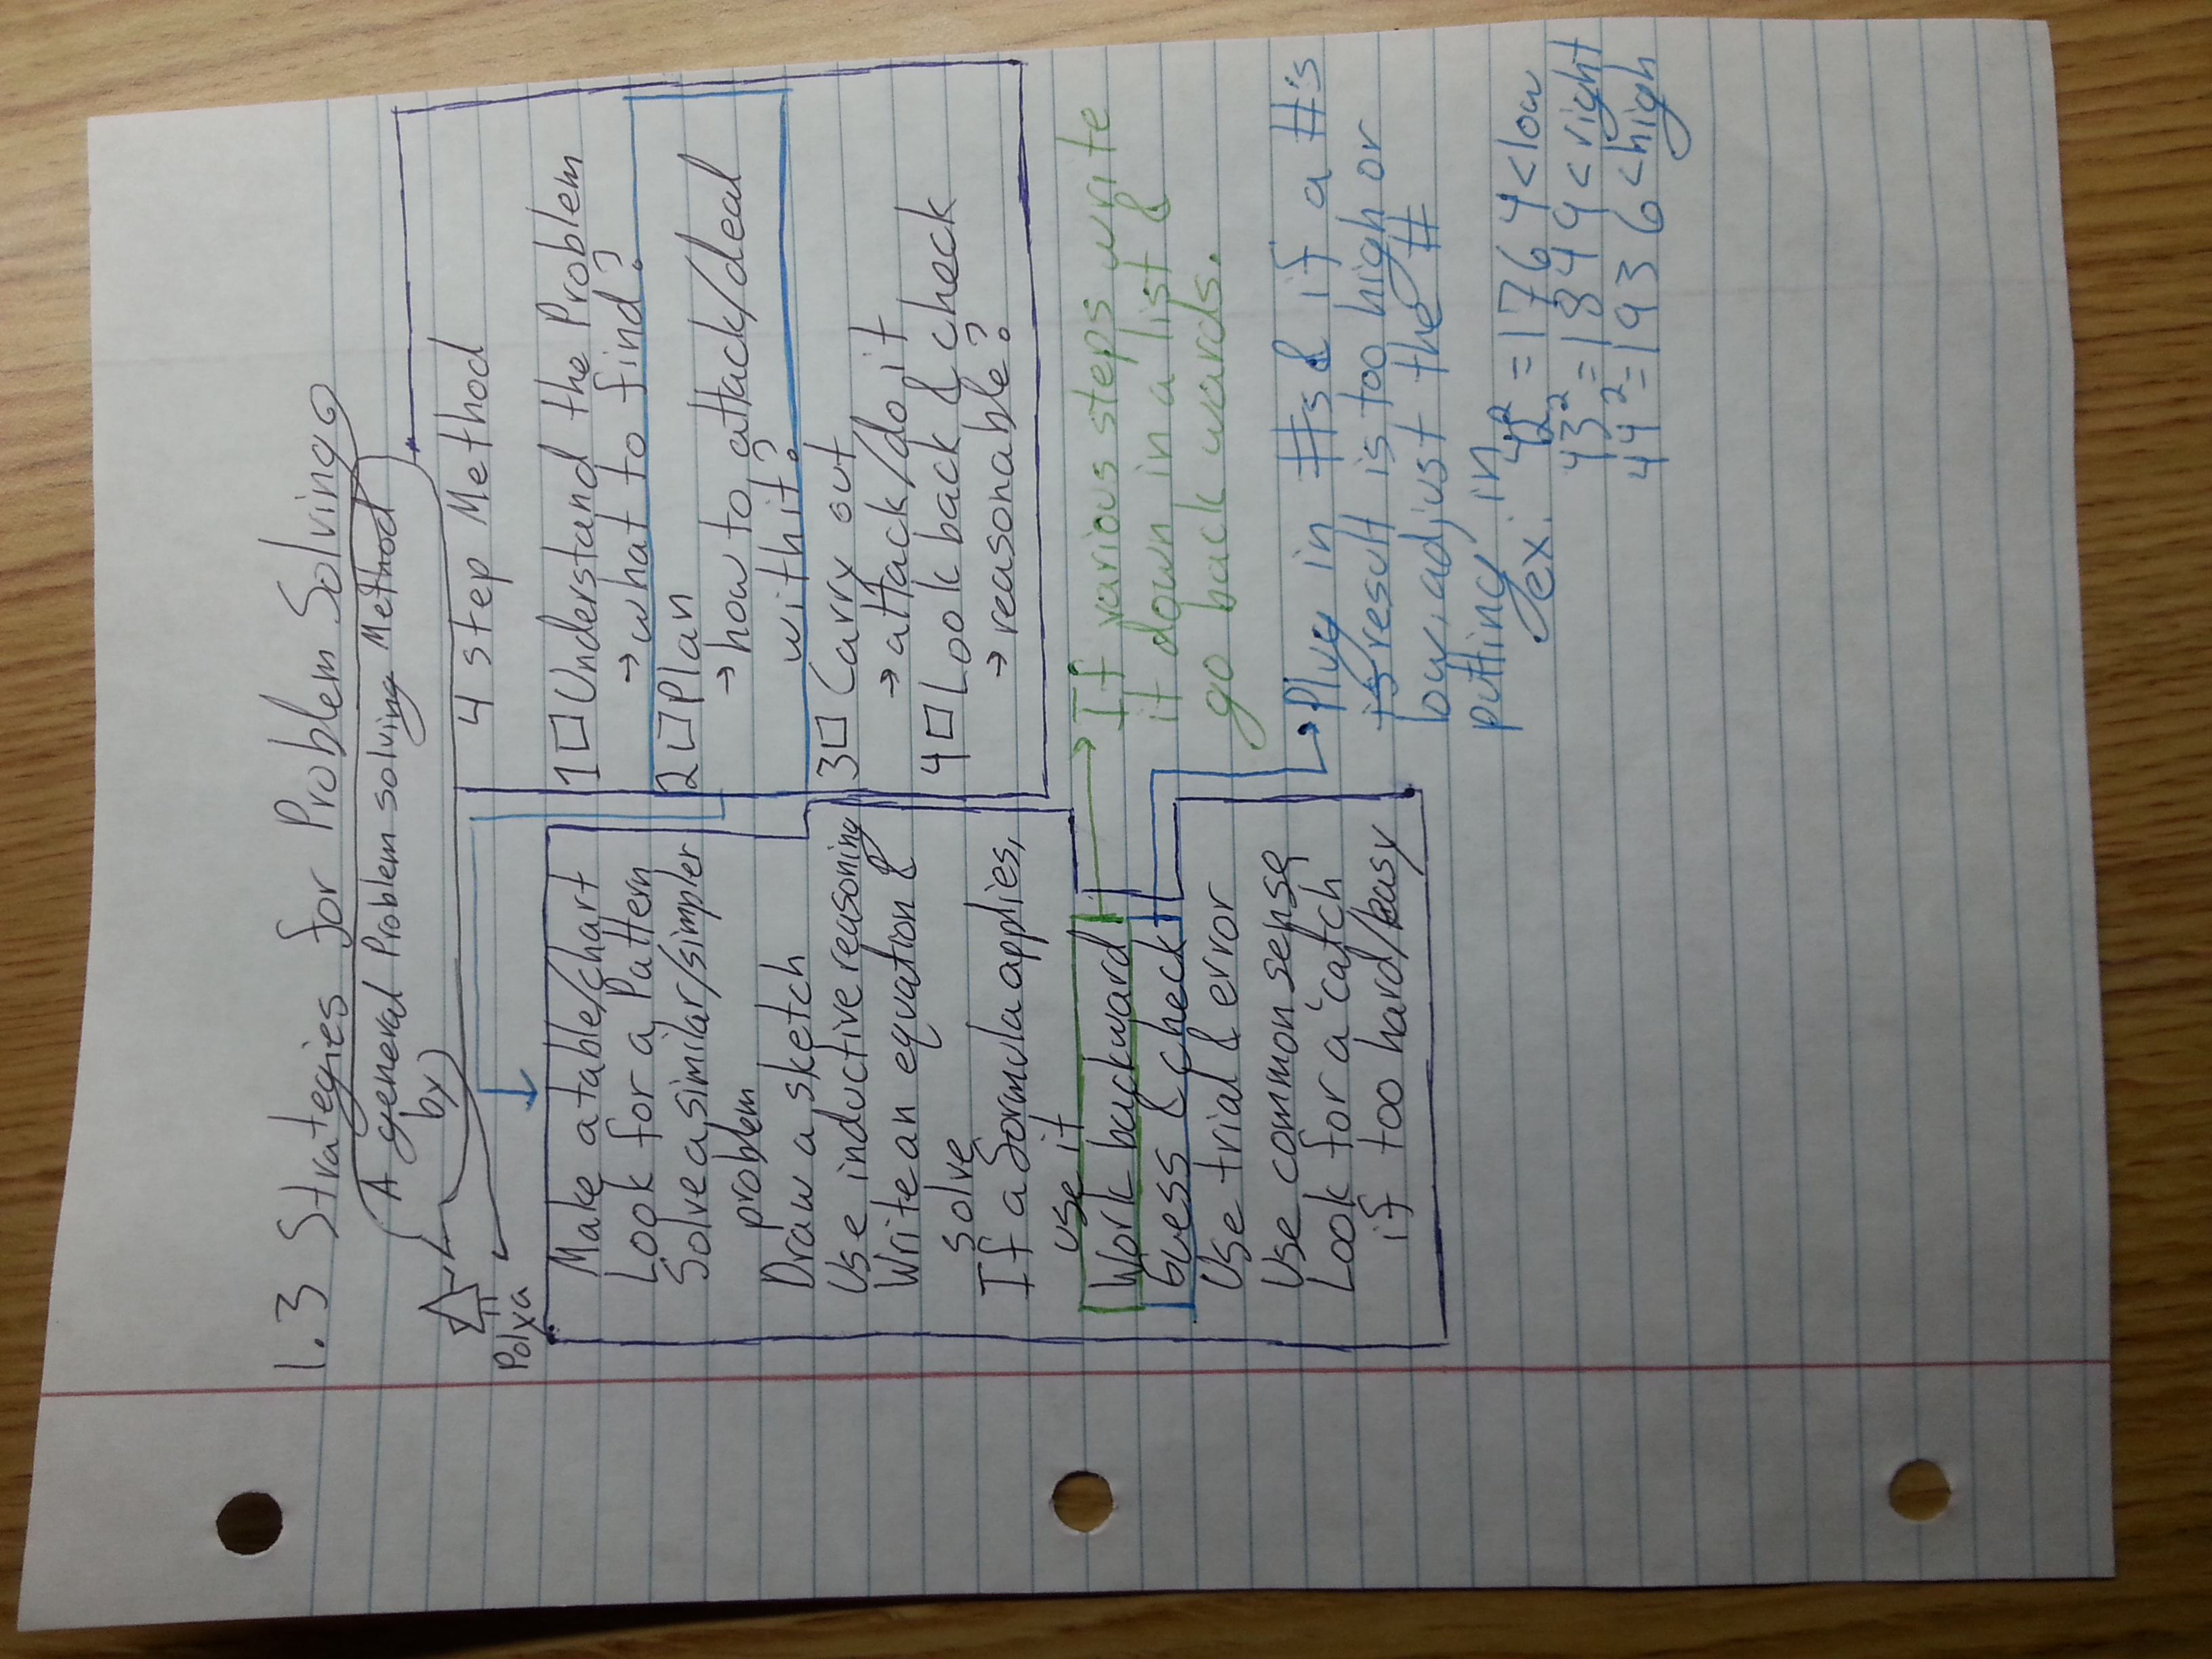 1.3 Strategies for Problem Solving
A general Problem solving Method
by
Polya
4 step Method
1 Understand the Problem
→ what to find?
2 Plan
→ how to attack/deal
with it?
3 Carry out
→ attack/do it
4 Look back & check
→ reasonable?
Make a table/chart
Look for a Pattern
Solve a similar/simpler
problem
Draw a sketch
Use inductive reasoning
Write an equation &
solve
If a formula applies,
use it
Work backward
Guess & check
Use trial & error
Use common sense
Look for a "catch
if too hard/easy
→ If various steps write
it down in a list &
go back wards.
→ Plug in #s & if a #'s
result is too high or
low, adjust the #
putting in
ex. 42² = 1764 < low
43² = 1849 < right
44² = 1936 < high